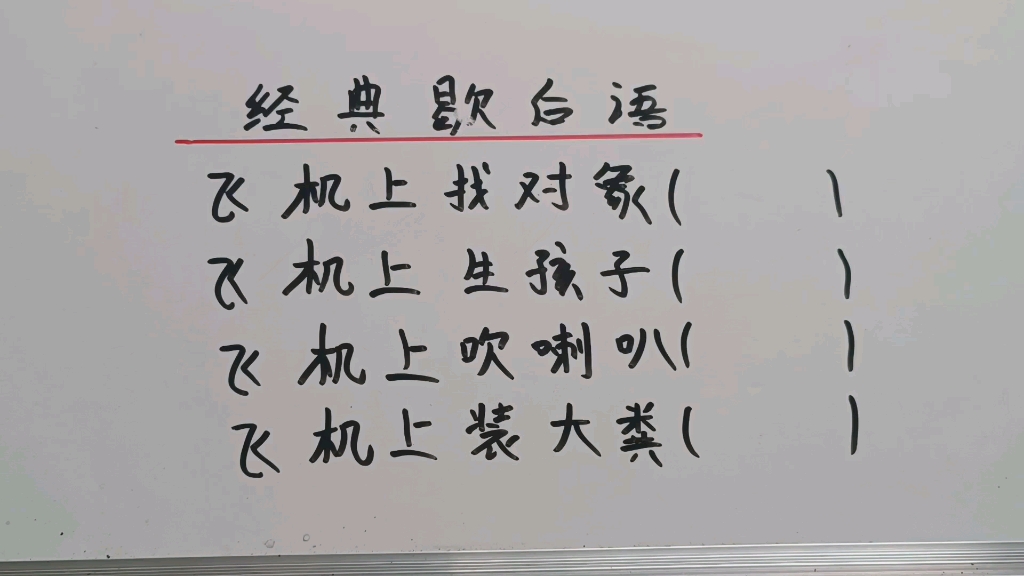 经典歇后语
飞机上找对象( )
飞机上生孩子( )
飞机上吹喇叭( )
飞机上装大粪( )